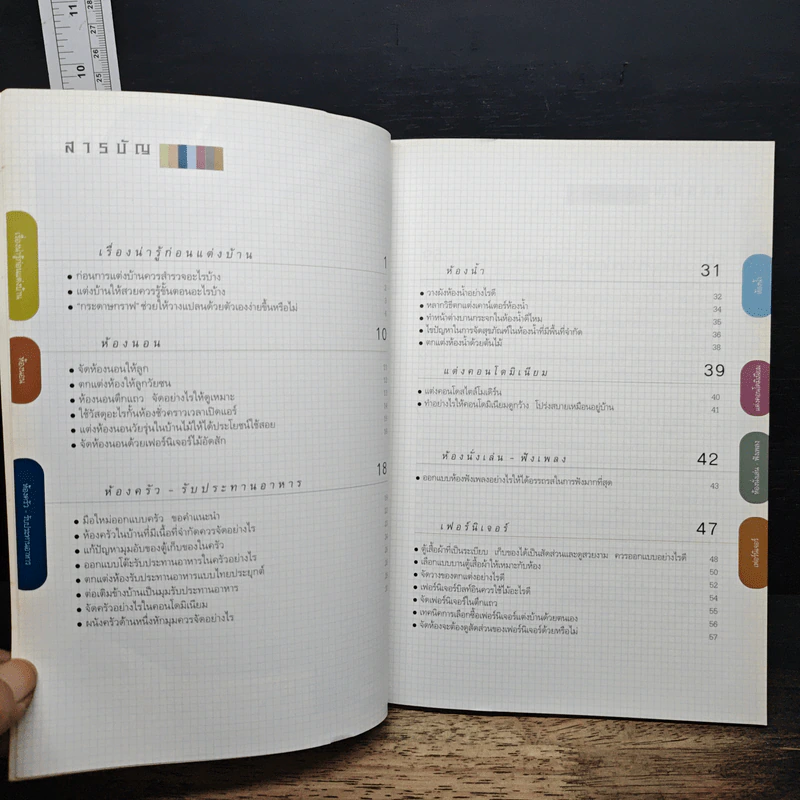 11
10
28
27
26
25
สารบัญ
เรื่องน่ารู้ก่อนแต่งบ้าน 1
ก่อนการแต่งบ้านควรสำรวจอะไรบ้าง
แต่งบ้านให้สวยควรรู้ขั้นตอนอะไรบ้าง
"กระดาษกราฟ" ช่วยให้วางแปลนด้วยตัวเองง่ายขึ้นหรือไม่
ห้องนอน 10
จัดห้องนอนให้ลูก
ตกแต่งห้องให้ลูกวัยซน
ห้องนอนตึกแถว จัดอย่างไรให้ดูเหมาะ
ใช้วัสดุอะไรกั้นห้องชั่วคราวเวลาเปิดแอร์
แต่งห้องนอนวัยรุ่นในบ้านไม้ให้ได้ประโยชน์ใช้สอย
จัดห้องนอนด้วยเฟอร์นิเจอร์ไม้อัดสัก
ห้องครัว - รับประทานอาหาร 18
มือใหม่ออกแบบครัว ขอคำแนะนำ
ห้องครัวในบ้านที่มีเนื้อที่จำกัดควรจัดอย่างไร
แก้ปัญหามุมอับของตู้เก็บของในครัว
ออกแบบโต๊ะรับประทานอาหารในครัวอย่างไร
ตกแต่งห้องรับประทานอาหารแบบไทยประยุกต์
ต่อเติมข้างบ้านเป็นมุมรับประทานอาหาร
จัดครัวอย่างไรในคอนโดมิเนียม
ผนังครัวด้านหนึ่งหักมุมควรจัดอย่างไร
เรื่องน่ารู้ก่อนแต่งบ้าน
ห้องนอน
ห้องครัว - รับประทานอาหาร
ห้องน้ำ 31
วางผังห้องน้ำอย่างไรดี 32
หลากวิธีตกแต่งเคาน์เตอร์ห้องน้ำ 34
ทำหน้าต่างบานกระจกในห้องน้ำดีไหม 35
ไขปัญหาในการจัดสุขภัณฑ์ในห้องน้ำที่มีพื้นที่จำกัด 36
ตกแต่งห้องน้ำด้วยต้นไม้ 38
แต่งคอนโดมิเนียม 39
แต่งคอนโดสไตล์โมเดิร์น 40
ทำอย่างไรให้คอนโดมิเนียมดูกว้าง โปร่งสบายเหมือนอยู่บ้าน 41
ห้องนั่งเล่น - ฟังเพลง 42
ออกแบบห้องฟังเพลงอย่างไรให้ได้อรรถรสในการฟังมากที่สุด 43
เฟอร์นิเจอร์ 47
ตู้เสื้อผ้าที่เป็นระเบียบ เก็บของได้เป็นสัดส่วนและดูสวยงาม ควรออกแบบอย่างไรดี 48
เลือกแบบบานตู้เสื้อผ้าให้เหมาะกับห้อง 50
จัดวางของตกแต่งอย่างไรดี 52
เฟอร์นิเจอร์บิลท์อินควรใช้ไม้อะไรดี 54
จัดเฟอร์นิเจอร์ในตึกแถว 55
เทคนิคการเลือกซื้อเฟอร์นิเจอร์แต่งบ้านด้วยตนเอง 56
จัดห้องจะต้องดูสัดส่วนของเฟอร์นิเจอร์ด้วยหรือไม่ 57
ห้องน้ำ
แต่งคอนโดมิเนียม
ห้องนั่งเล่น - ฟังเพลง
เฟอร์นิเจอร์